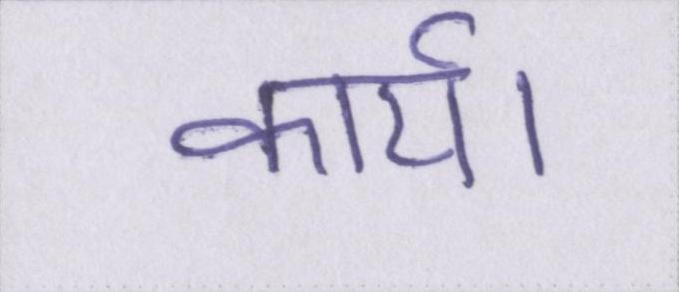 कार्य।